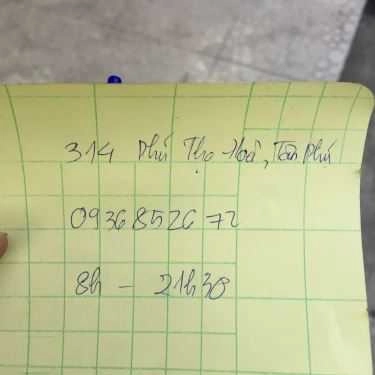 314 Phú Thọ Hoà, Tân Phú
0936852672
8h - 21h30